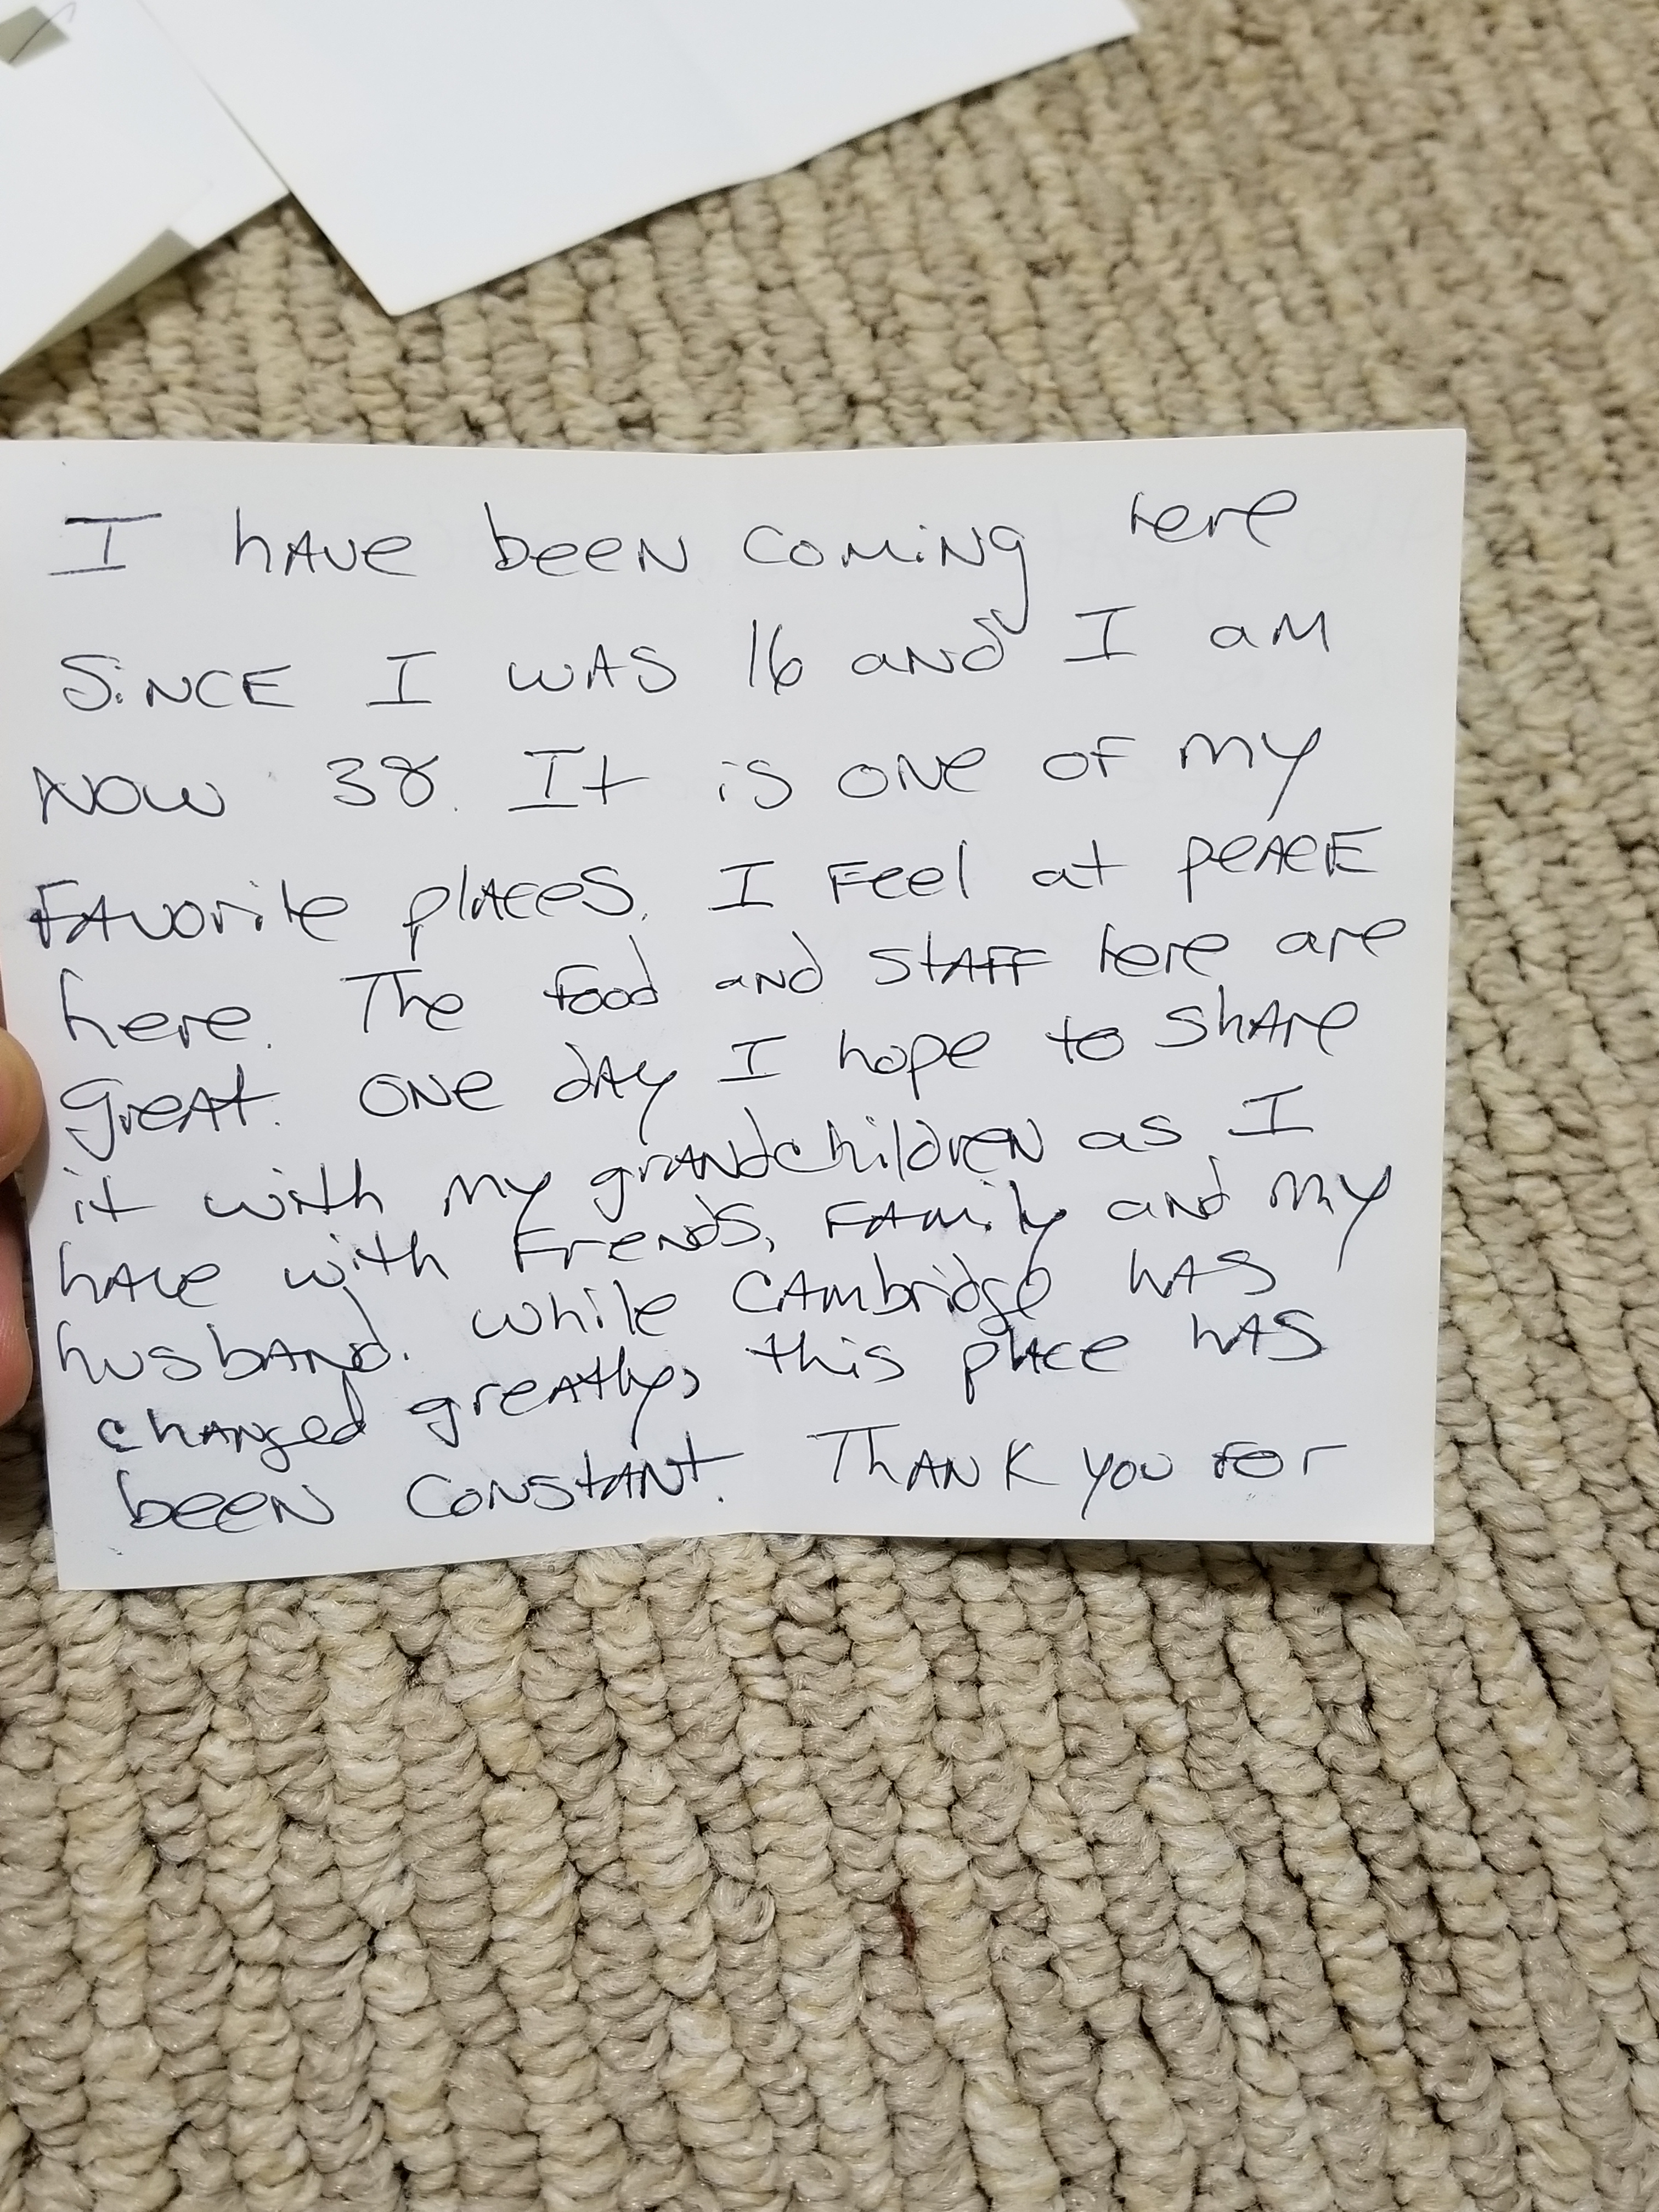 I have been coming here
since I was 16 and I am
now 38. It is one of my
favorite places. I feel at peace
here. The food and staff here are
great. One day I hope to share
it with my grandchildren as I
have with frends, family and my
husband. While Cambridge has
changed greatly, this place has
been constant. Thank you for